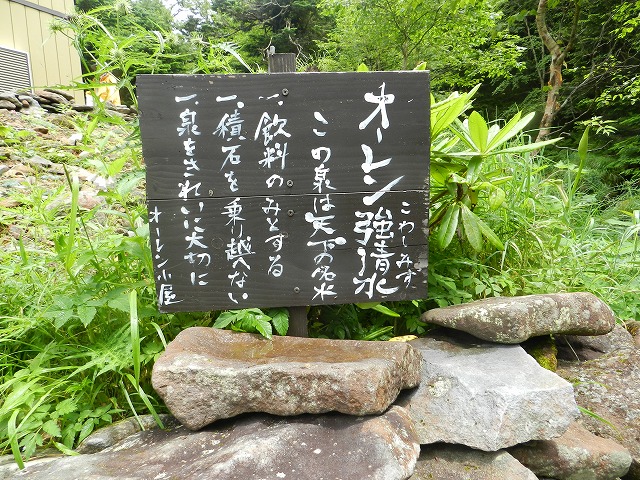 オーレン強清水
こわしみず
この泉は天下の名水
一、飲料のみとする
一、積石を乗り越へない
一、泉をきれいに大切に
オーレン小屋